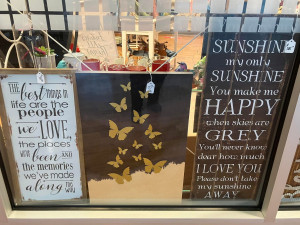 THE
best things in
life are the
people
we LOVE,
the places
we've been and
the memories
we've made
along the
way
SUNSHINE
my only
SUNSHINE
You make me
HAPPY
when skies are
GREY
You'll never know
dear how much
I LOVE YOU
Please don't take
my sunshine
AWAY